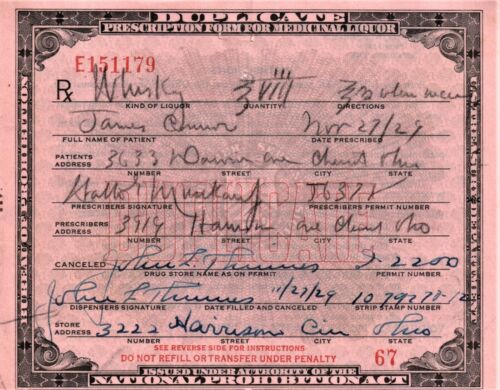 DUPLICATE
PRESCRIPTION FORM FOR MEDICINAL LIQUOR
E151179
BUREAU OF PROHIBITION
Rx Whisky ℥VIII
KIND OF LIQUOR QUANTITY DIRECTIONS
James Nov 27/29
FULL NAME OF PATIENT DATE PRESCRIBED
PATIENTS ADDRESS 3633 ave Ohio
NUMBER STREET CITY STATE
PRESCRIBERS SIGNATURE PERMIT NUMBER
PRESCRIBERS ADDRESS 3919 Harrison ave Ohio
NUMBER STREET CITY STATE
CANCELED John L 2200
DRUG STORE NAME AS ON PERMIT PERMIT NUMBER
John L 11/27/29
DISPENSERS SIGNATURE DATE FILLED AND CANCELED STRIP STAMP NUMBER
STORE ADDRESS 3222 Harrison Cin Ohio
NUMBER STREET CITY STATE
SEE REVERSE SIDE FOR INSTRUCTIONS
DO NOT REFILL OR TRANSFER UNDER PENALTY 67
ISSUED UNDER AUTHORITY OF THE
NATIONAL PROHIBITION ACT